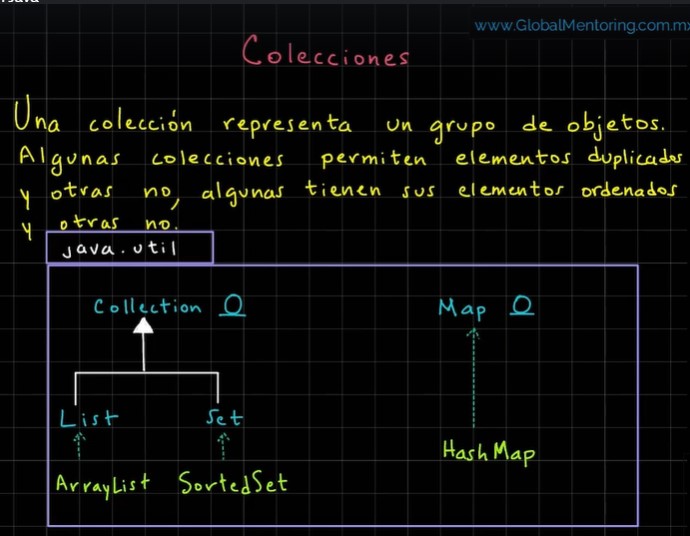 www.GlobalMentoring.com.m
Colecciones
Una colección representa un grupo de objetos.
Algunas colecciones permiten elementos duplicados
y otras no, algunas tienen sus elementos ordenados
y otras no.
java.util
Collection
Map
List
Set
HashMap
ArrayList
SortedSet